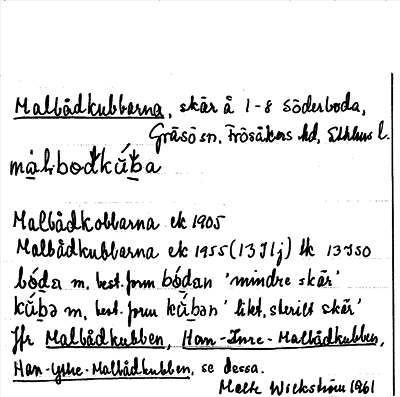 Malbådkubbarna, skär å 1-8 Söderboda,
Gräsö sn, Frösåkers hd, Sthlms l.
Malbådkobbarna ek 1905
Malbådkubbarna ek 1955 (13I1j) tk 13I SO
bó̱da m, best. form bó̱dan 'mindre skär'
kú̱bə m, best. form kú̱bən 'litet, sterilt skär'
Jfr Malbådkubben, Han-Inre-Malbådkubben,
Han-Yttre-Malbådkubben, se dessa.
Malte Wickström 1961